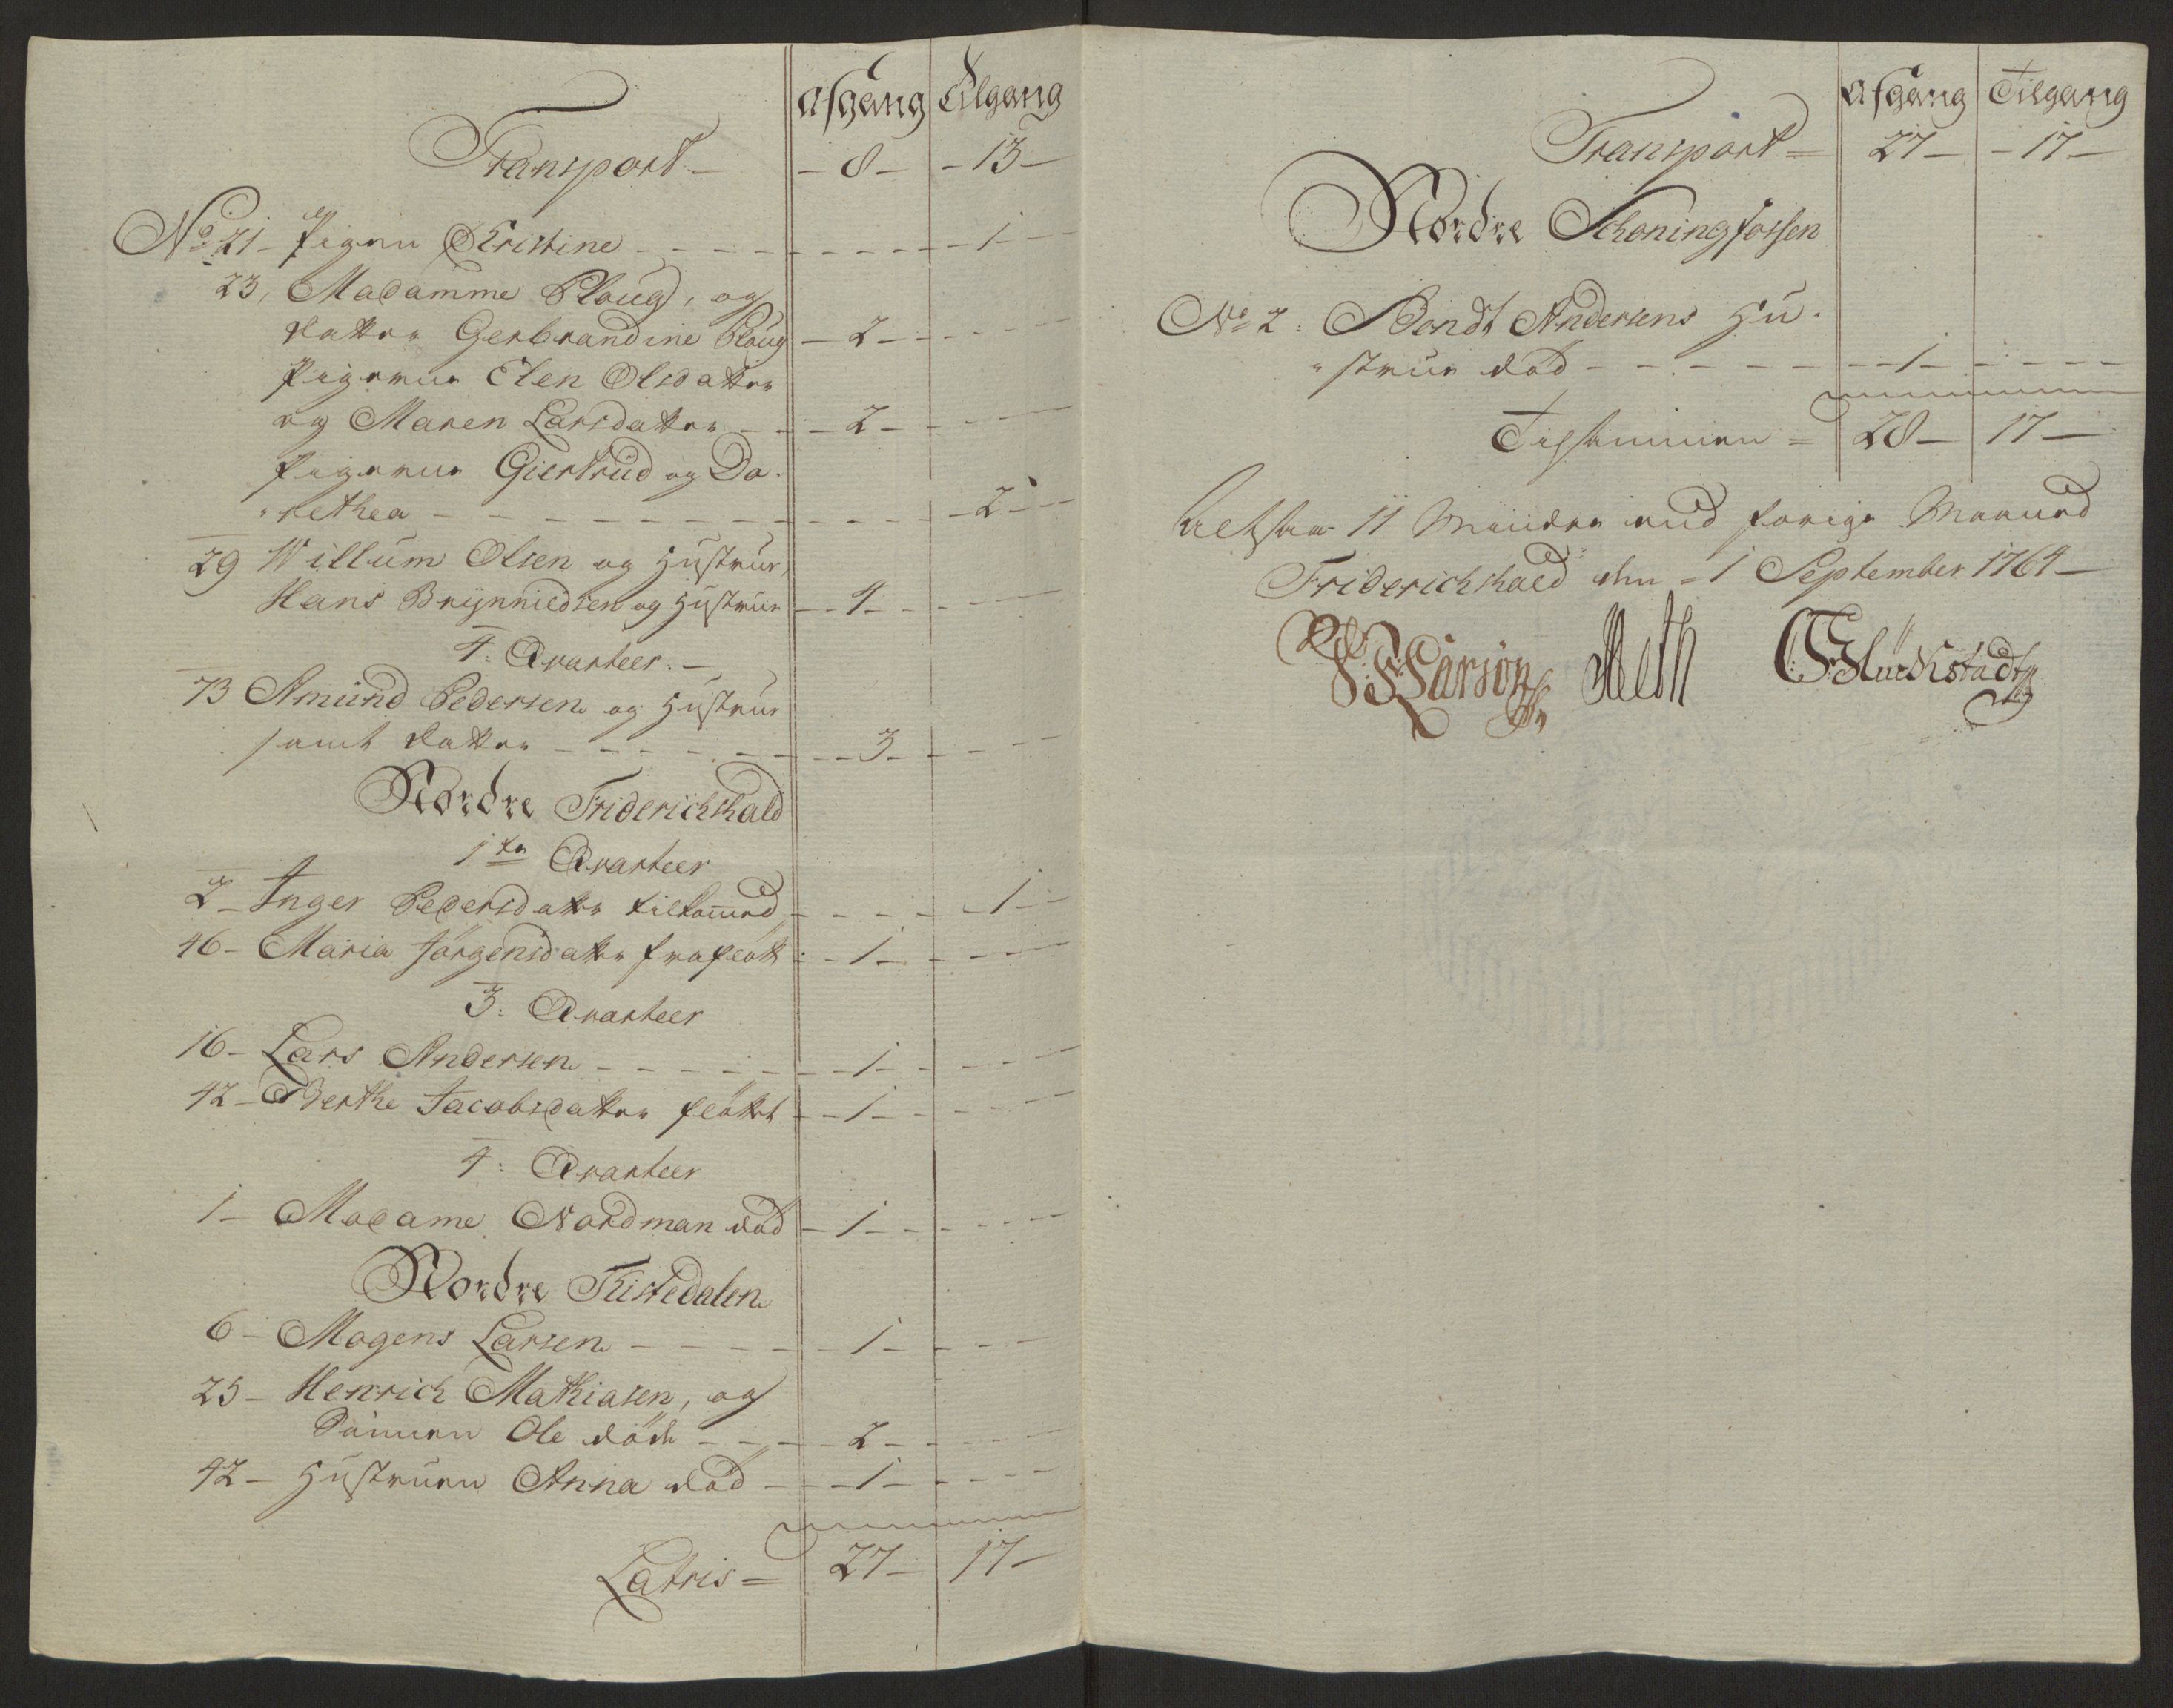 Afgang Tilgang
Transport - 8 - - 13 -
No 21 - Pigen Christine - - - - - - - 1 -
23, Madamme Ploug, og
datter Gerbrandine Ploug - 2 - -
Pigerne Elen Olsdatter
og Maren Larsdatter - - 2 -
Pigerne Giertrud og Do-
rethea - - - - - - - - 2 - -
29 Willum Olsen og Hustrue,
Hans Brynnildsen og Hustrue - 4 -
4: Qvarteer. -
73 Amund Pedersen og Hustrue
samt datter - - - - - 3 -
Nordre Friderichshald
1te Qvarteer
2 - Inger Pedersdatter tilkommed - - - 1 -
46 - Maria Jörgensdatter fraflött - 1 -
3: Qvarteer
16 - Lars Andersen - - - - - 1 -
42 - Berthe Jacobsdatter flöttet - 1 -
4: Qvarteer
1 - Madame Nordman död - 1 - -
Nordre Tistedalen
6 - Mogens Larsen - - - - 1 -
25 - Henrich Mathiasen, og
Sönnen Ole döde - - - 2 -
42 - Hustruen Anna död - - 1 -
Latris = 27 - 17 -
Afgang Tilgang
Transport = 27 - - 17 -
Nordre Schoningfossen
No 2: Bendt Andersens Hu-
strue död - - - - - 1 -
Tilsammen = 28 - 17 -
Altsaa 11 Mindre end forige Maaned
Friderichshald den 1 September 1764 -
Larson Meth Glückstadt